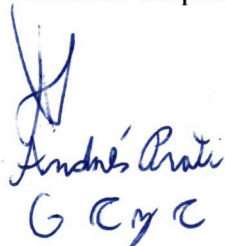 Andrés Prati
G C y C